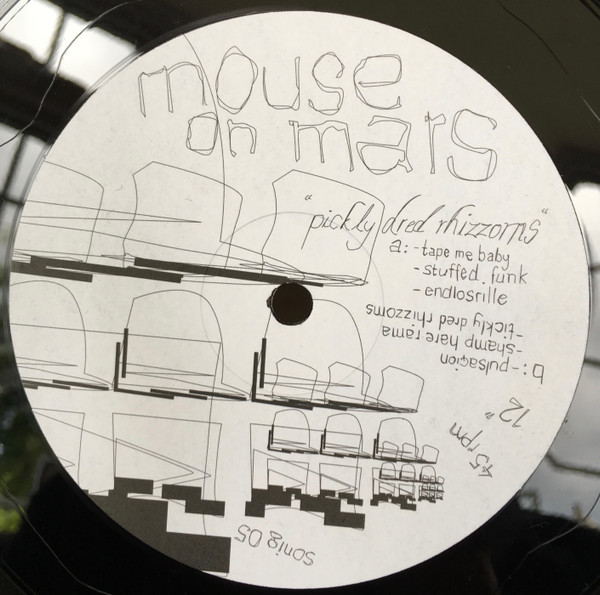 mouse
on mars
"pickly dred rhizzoms"
a: - tape me baby
- stuffed funk
- endlosrille
b: - pulsacion
- shamp hare rama
- tickly dred rhizzoms
12"
45 rpm
sonig 05